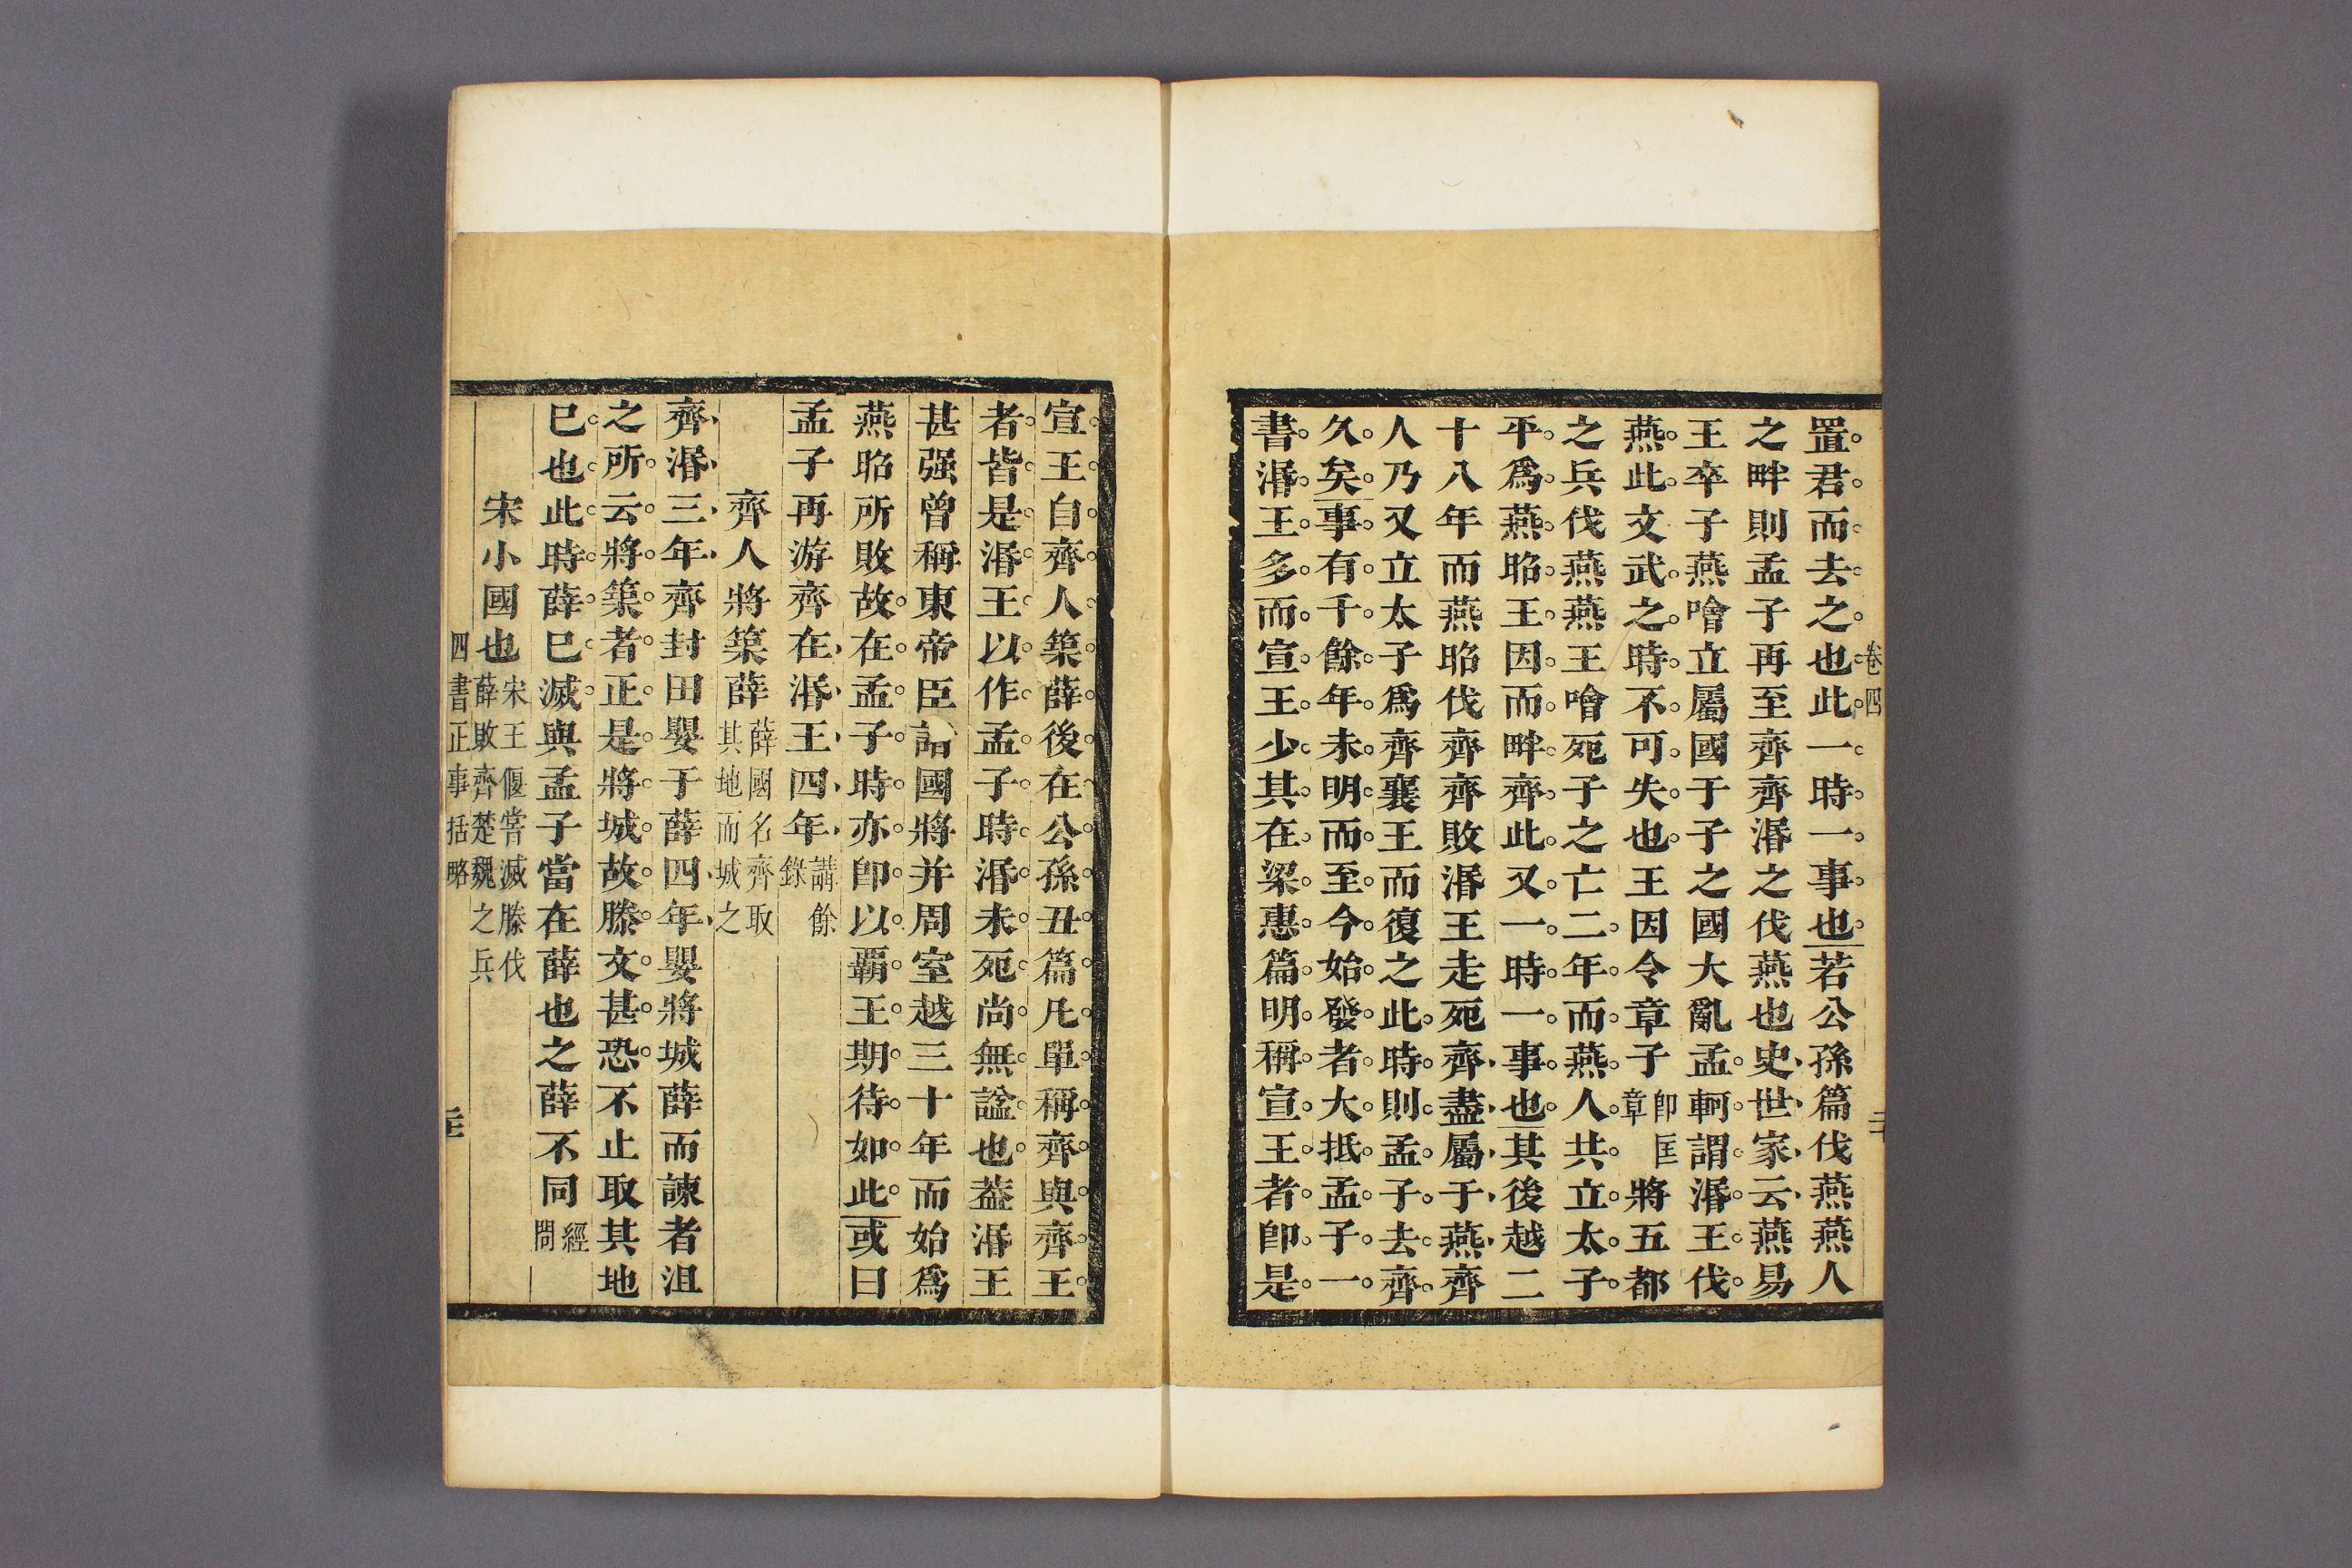 卷四
二十
置君而去之也此一時一事也若公孫篇伐燕燕人
之畔則孟子再至齊齊湣之伐燕也史世家云燕易
王卒子燕噲立屬國于子之國大亂孟軻謂湣王伐
燕此文武之時不可失也王因令章子卽匡章將五都
之兵伐燕燕王噲死子之亡二年而燕人共立太子
平爲燕昭王因而畔齊此又一時一事也其後越二
十八年而燕昭伐齊齊敗湣王走死齊盡屬于燕齊
人乃又立太子爲齊襄王而復之此時則孟子去齊
久矣事有千餘年未明而至今始發者大抵孟子一
書湣王多而宣王少其在梁惠篇明稱宣王者卽是
宣王自齊人築薛後在公孫丑篇凡單稱齊與齊王
者皆是湣王以作孟子時湣未死尚無諡也葢湣王
甚强曾稱東帝臣諸國將并周室越三十年而始爲
燕昭所敗故在孟子時亦卽以覇王期待如此或曰
孟子再游齊在湣王四年講餘錄
齊人將築薛薛國名齊取其地而城之
齊湣三年齊封田嬰于薛四年嬰將城薛而諫者沮
之所云將築者正是將城故滕文甚恐不止取其地
巳也此時薛巳滅與孟子當在薛也之薛不同經問
宋小國也宋王偃嘗滅滕伐薛敗齊楚魏之兵
四書正事括略